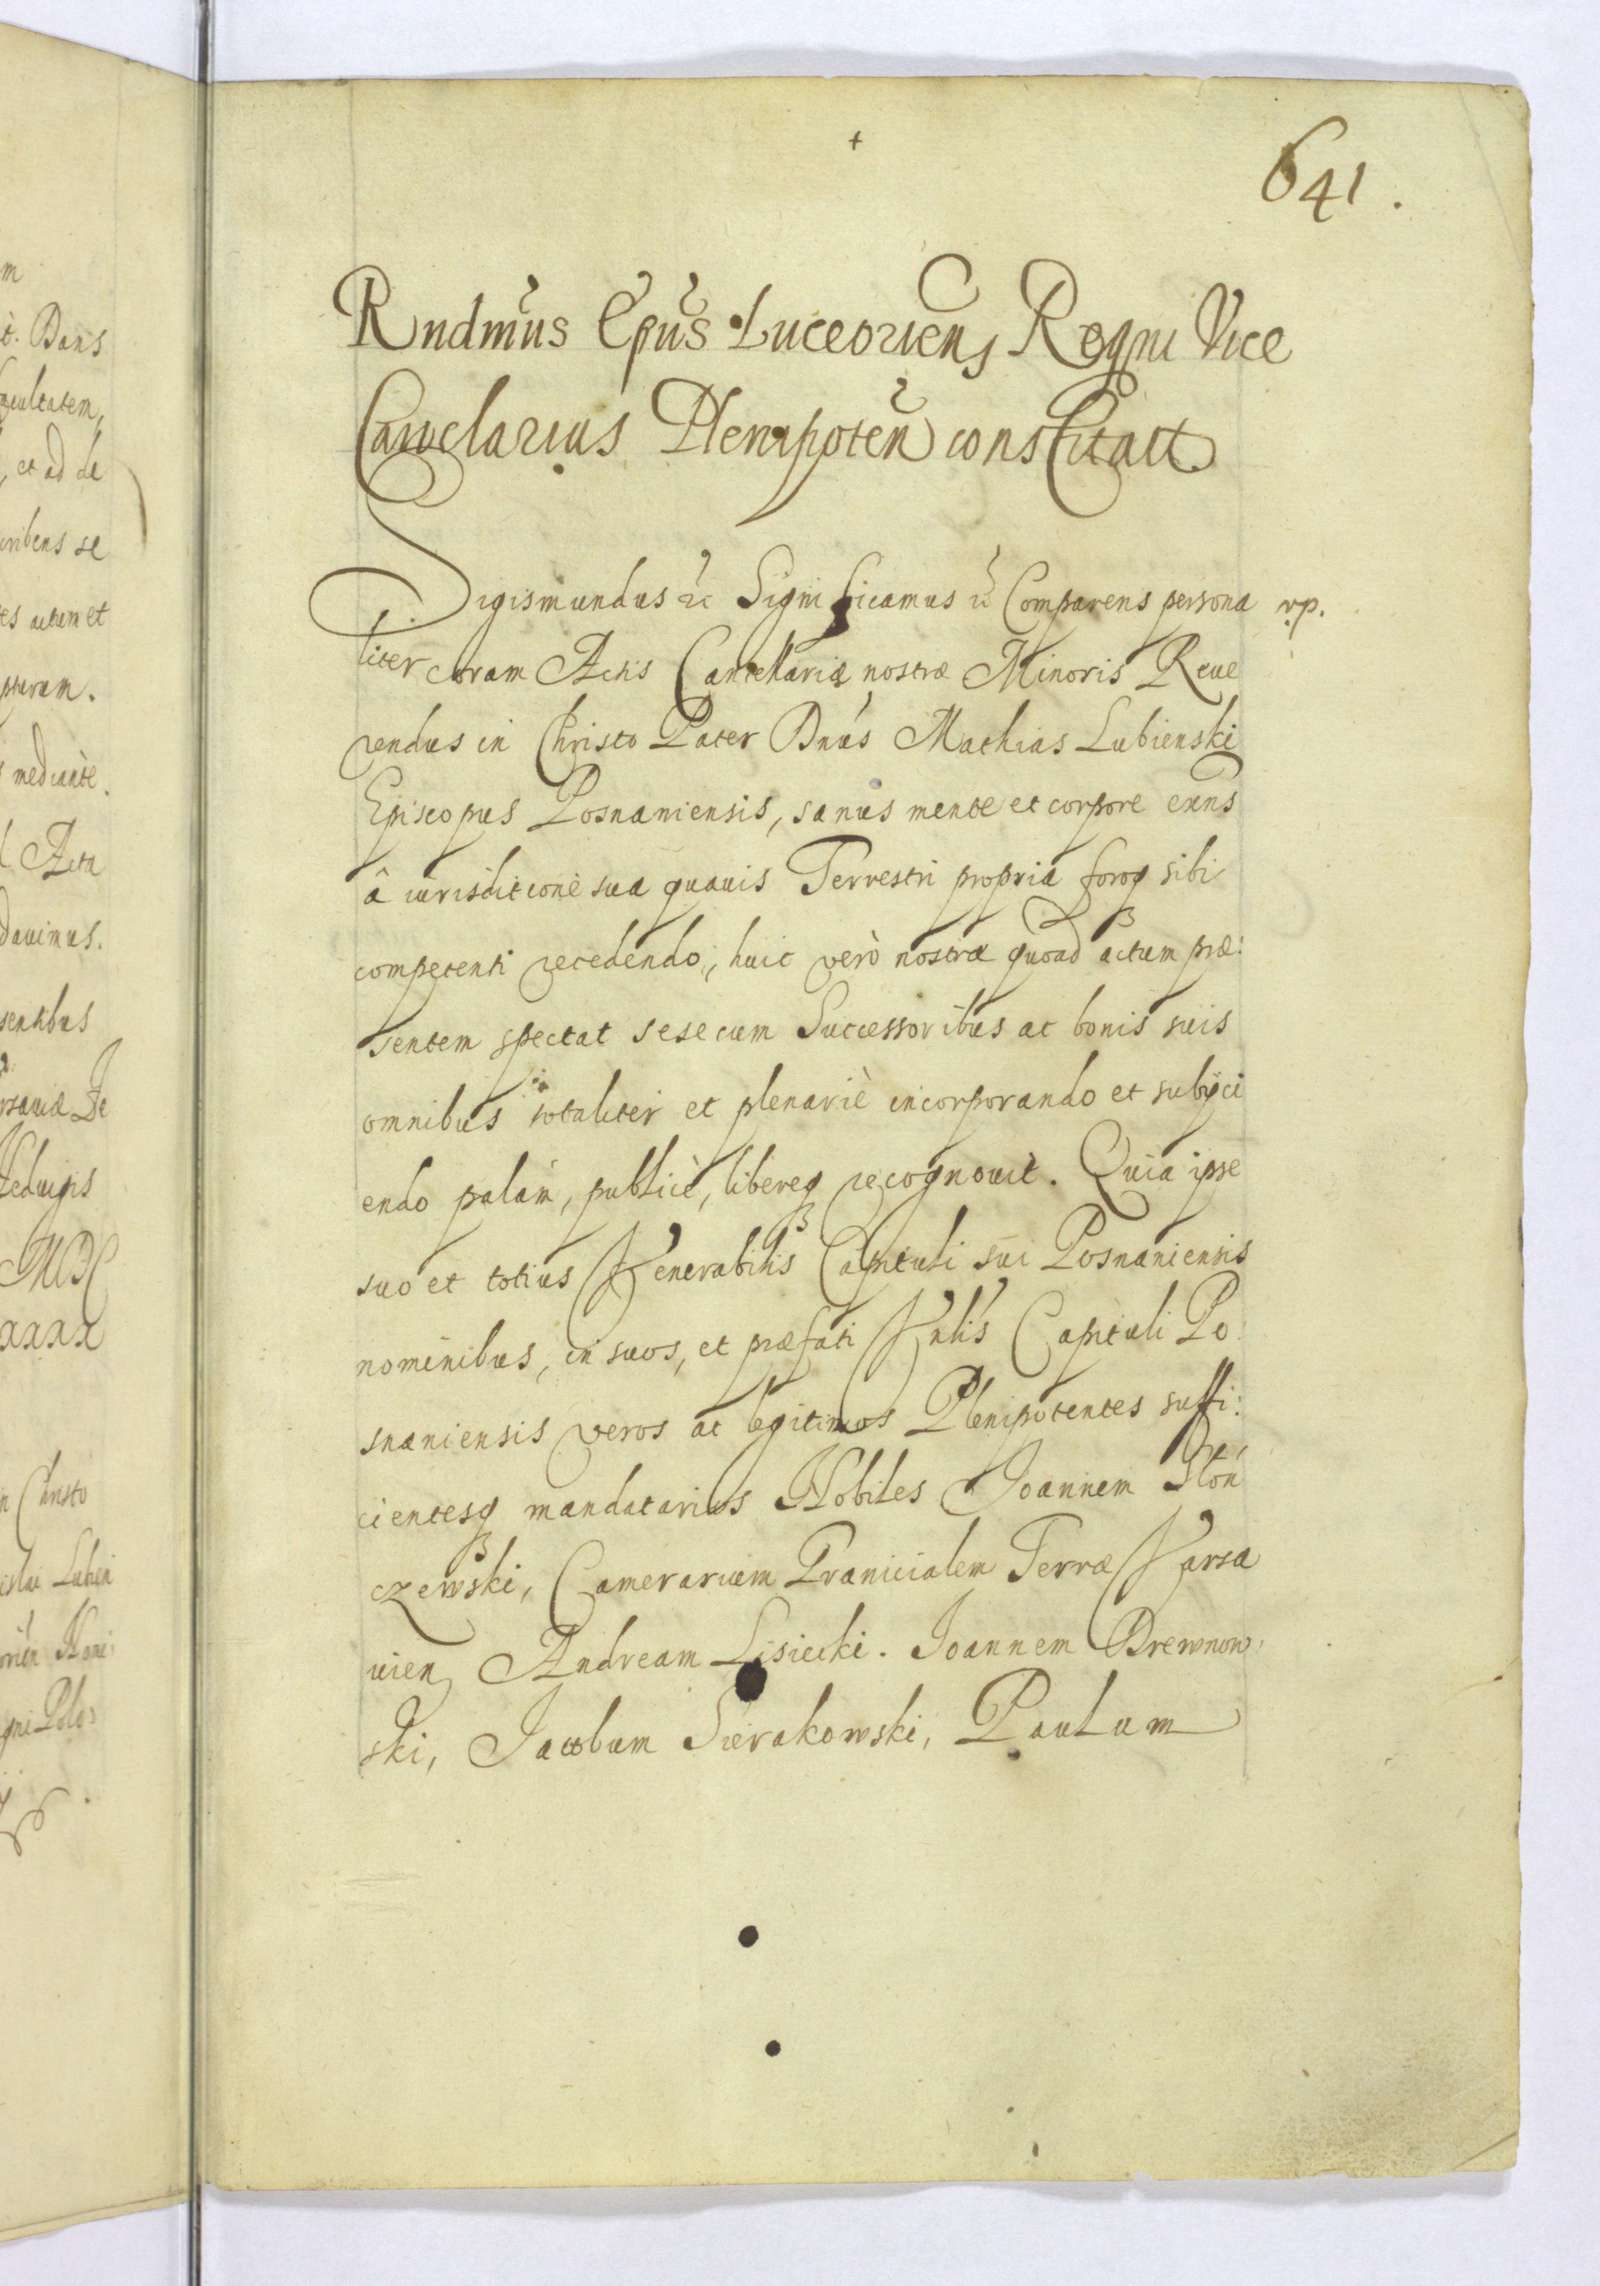 641.
Rndmus Epus Luceoriens Regni Vice
Cancelarius Plenipoten constituit
Sigismundus etc Significamus etc Comparens persona
rp.
liter coram Actis Cancellariæ nostræ Minoris Reue
rendus in Christo Pater Dnus Mathias Lubienski
Episcopus Posnaniensis, sanus mente et corpore exns
â iurisditione sua quauis Terrestri propria foroq sibi
competenti recedendo, huic verò nostræ quoad actum præ:
sentem spectat sese cum Successoribus ac bonis suis
omnibus totaliter et plenariè incorporando et subijci
endo palàm, publicè, libereq recognouit. Quia ipse
suo et totius Venerabilis Capituli sui Posnaniensis
nominibus, in suos, et præfati Vnlis Capituli Po
snaniensis veros ac legitimos Plenipotentes suffi:
cientesq mandatarios Nobiles Joannem Słon
czewski, Camerarium Granicialem Terræ Varsa
uien Andream Lisiecki. Joannem Drewnow
ski, Jacobum Sierakowski, Paulum
m
Dans
facultatem,
, et ad de
cribens se
es actum et
mediante.
Acta
dauimus.
sentibus
rsauiæ De
Heduigis
MDC
xxxx
n Christo
Lubien
gni Polo